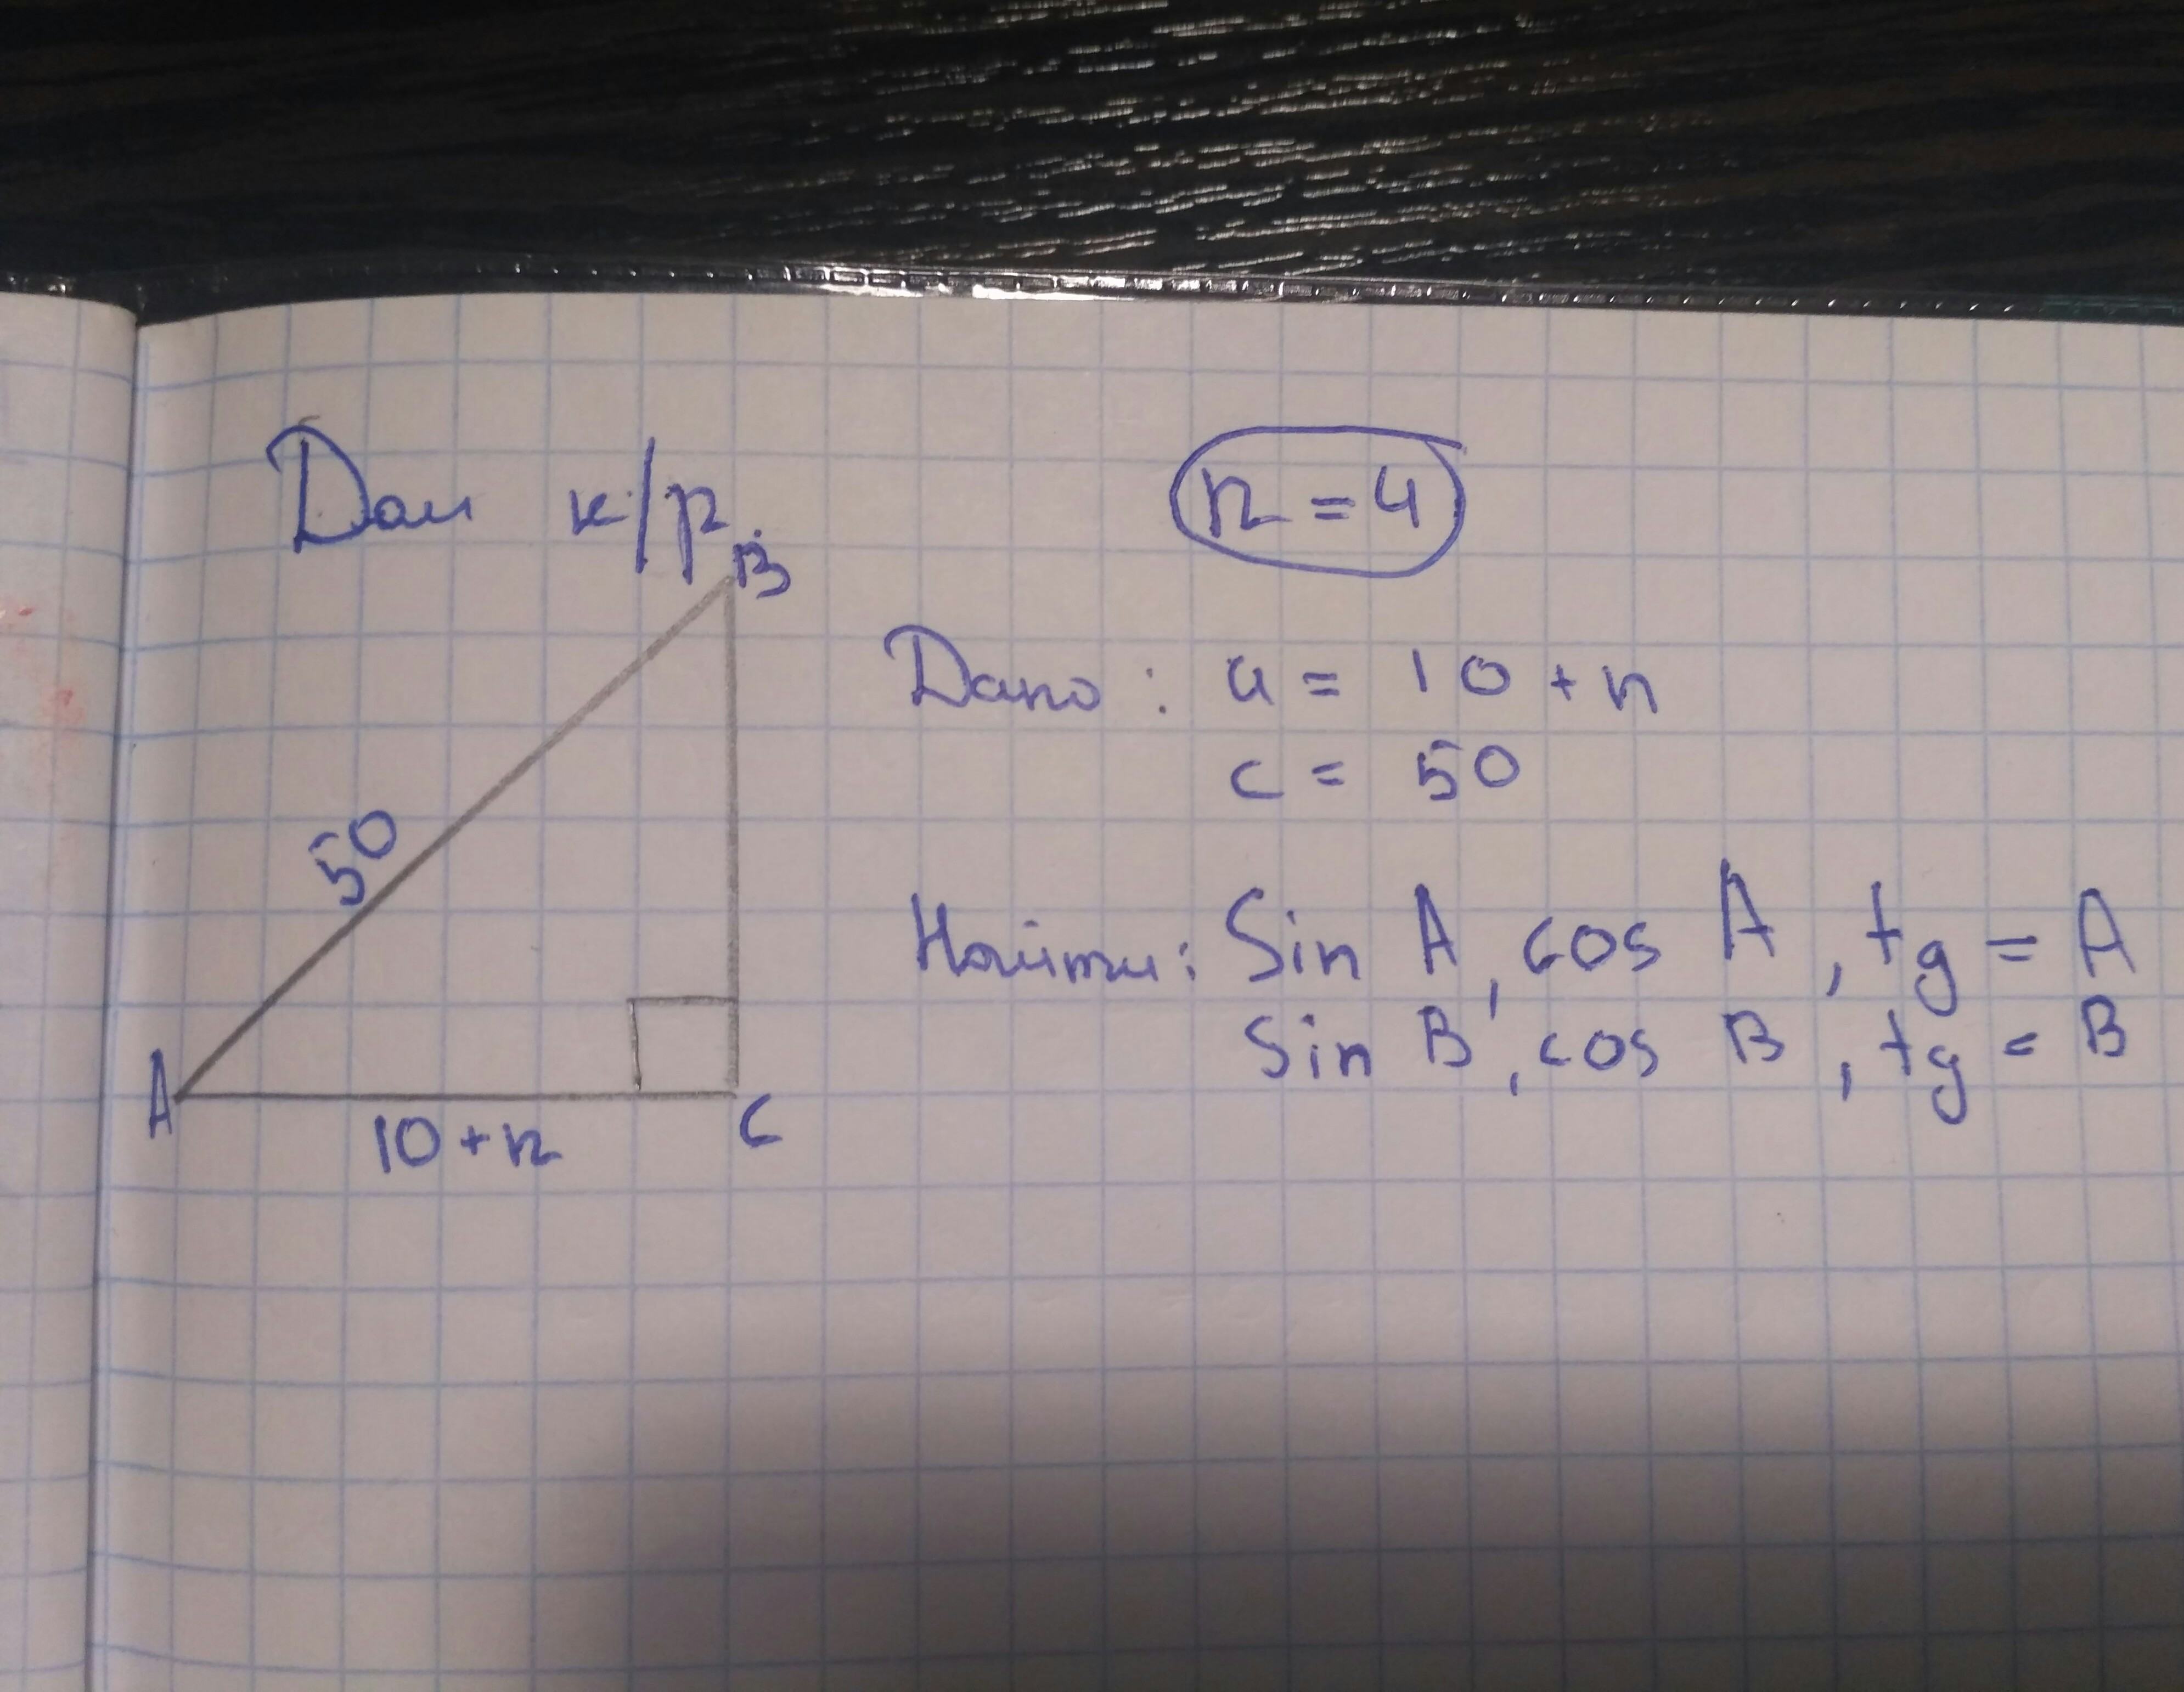 Дом к/р.
n = 4
B
Дано: a = 10 + n
c = 50
50
Найти: Sin A, cos A, tg = A
Sin B, cos B, tg = B
A
10 + n
C